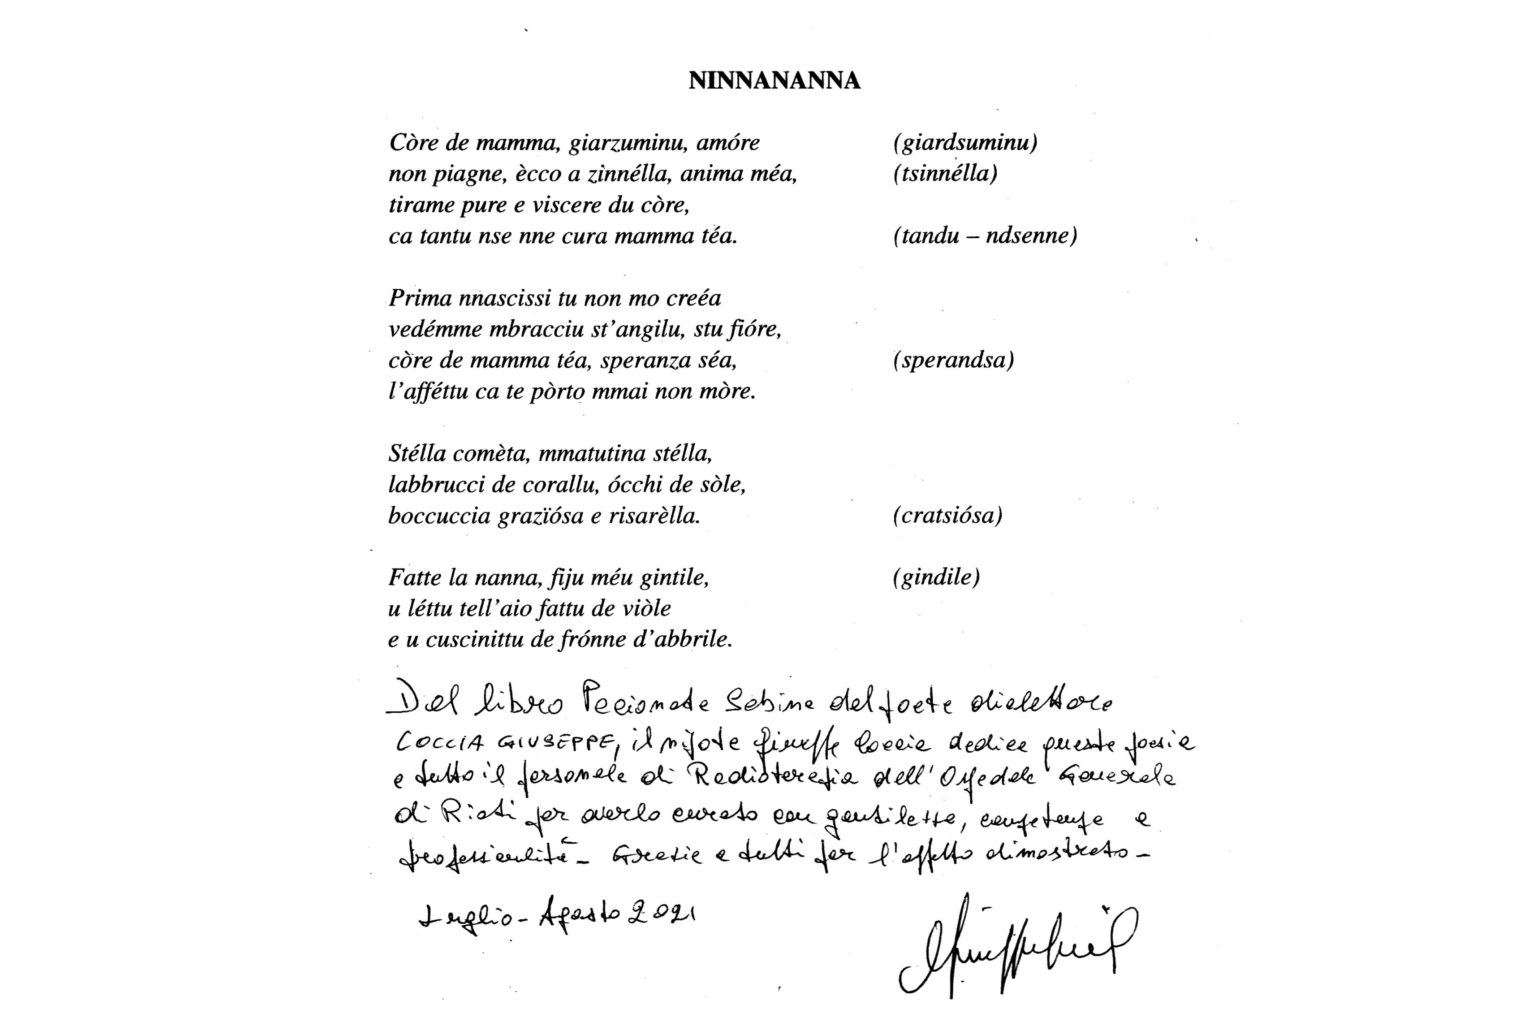 NINNANANNA
Còre de mamma, giarzuminu, amóre (giardsuminu)
non piagne, ècco a zìnnélla, anima méa, (tsinnélla)
tirame pure e viscere du còre,
ca tantu nse nne cura mamma téa. (tandu – ndsenne)
Prima nnascissi tu non mo creéa
vedémme mbracciu st'angilu, stu fióre,
còre de mamma téa, speranza séa, (sperandsa)
l'afféttu ca te pòrto mmai non mòre.
Stélla comèta, mmatutina stélla,
labbrucci de corallu, ócchi de sòle,
boccuccia grazïósa e risarèlla. (cratsiósa)
Fatte la nanna, fiju méu gintile, (gindile)
u léttu tell'aio fattu de viòle
e u cuscinittu de frónne d'abbrile.
Dal libro Pecionate Sabine del poeta dialettore
COCCIA GIUSEPPE, il nipote Giuseppe Coccia dedica questa poesia
a tutto il personale di Radioterapia dell'Ospedale Generale
di Rieti per averlo curato con gentilezza, competenza e
professionalità – Grazie a tutti per l'affetto dimostrato –
Luglio – Agosto 2021